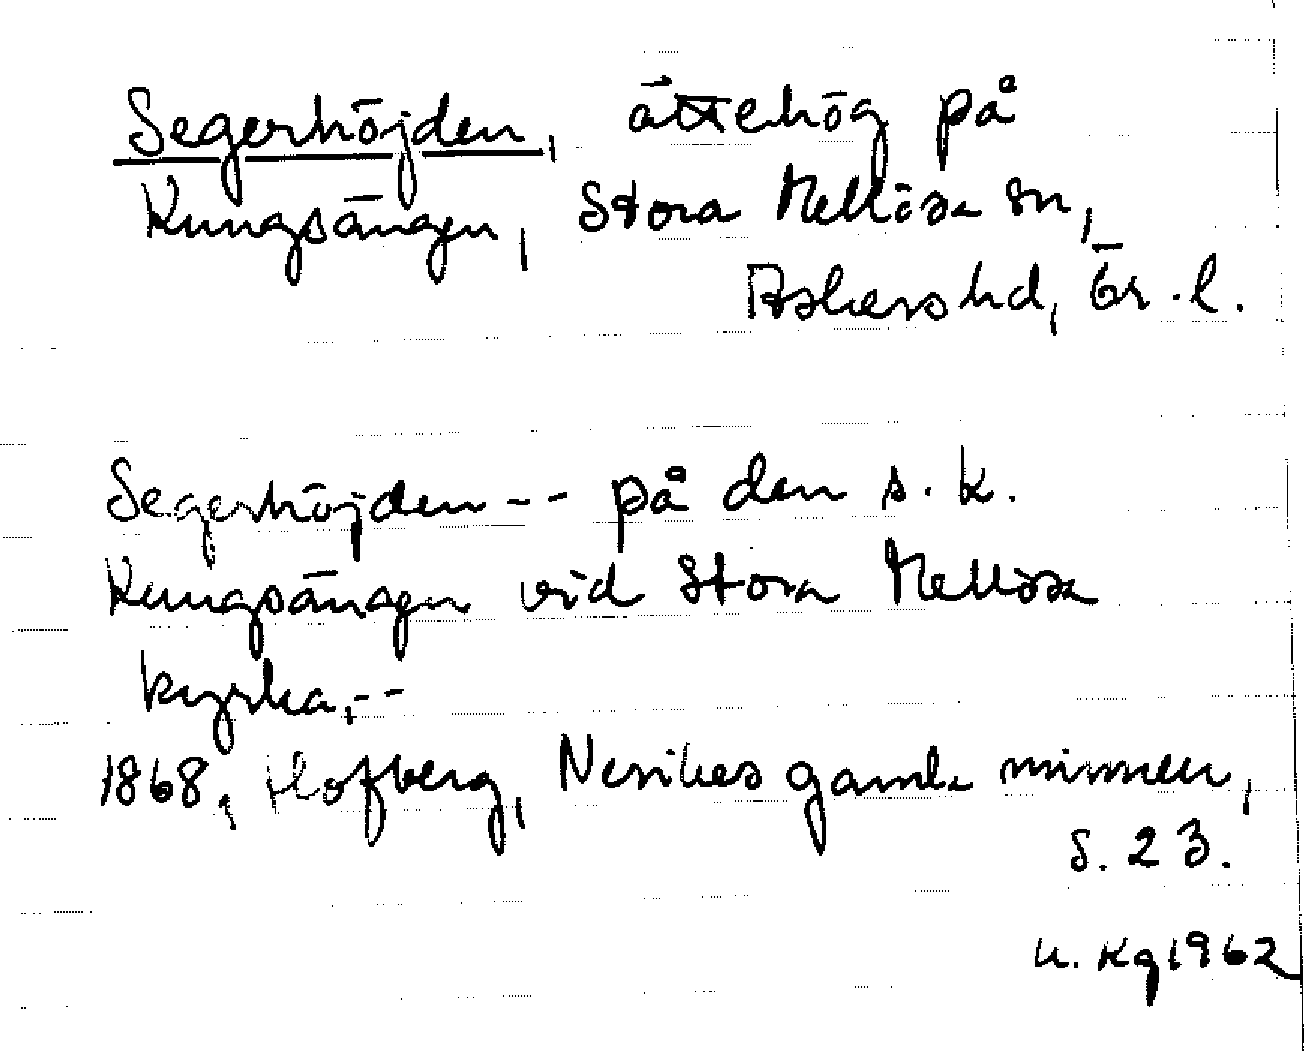 Segerhöjden, ättehög på
Kungsängen, Stora Mellösa sn,
Askers hd, Ör. l.
Segerhöjden -- på den s. k.
Kungsängen vid Stora Mellösa
kyrka, --
1868, Hofberg, Nerikes gamla minnen,
s. 23.
u. Kg 1962